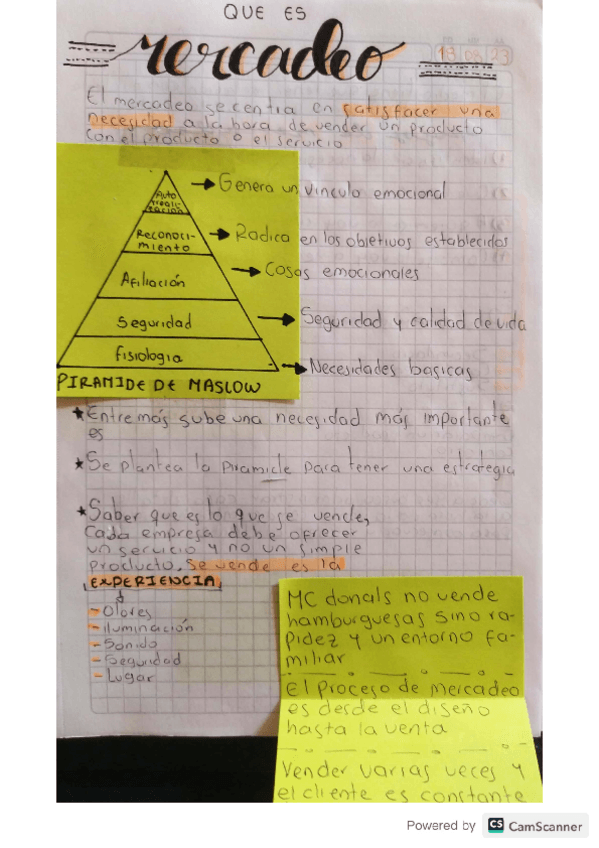 QUE ES
mercadeo
18 08 23
El mercadeo se centra en satisfacer una
necesidad a la hora de vender un producto
con el producto o el servicio
Auto
reali-
zación
Genera un vinculo emocional
Reconoci-
miento
Radica en los objetivos establecidos
Afiliación
Cosas emocionales
Seguridad
Seguridad y calidad de vida
fisiologia
Necesidades basicas
PIRAMIDE DE MASLOW
★Entre más sube una necesidad más importante
es
★Se plantea la piramide para tener una estrategia
★Saber que es lo que se vende,
Cada empresa debe ofrecer
un servicio y no un simple
producto, Se vende es la
EXPERIENCIA
-Olores
-iluminación
-Sonido
-Seguridad
-Lugar
MC donals no vende
hamburguesas sino ra-
pidez y un entorno fa-
miliar
El Proceso de mercadeo
es desde el diseño
hasta la venta
Vender varias veces y
el cliente es constante
Powered by CS CamScanner